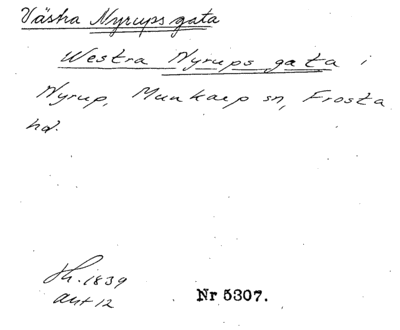 Västra Nyrups gata
Westra Nyrups gata i
Nyrup, Munkarp sn, Frosta
hd.
Sk. 1839
akt 12
Nr 5307.